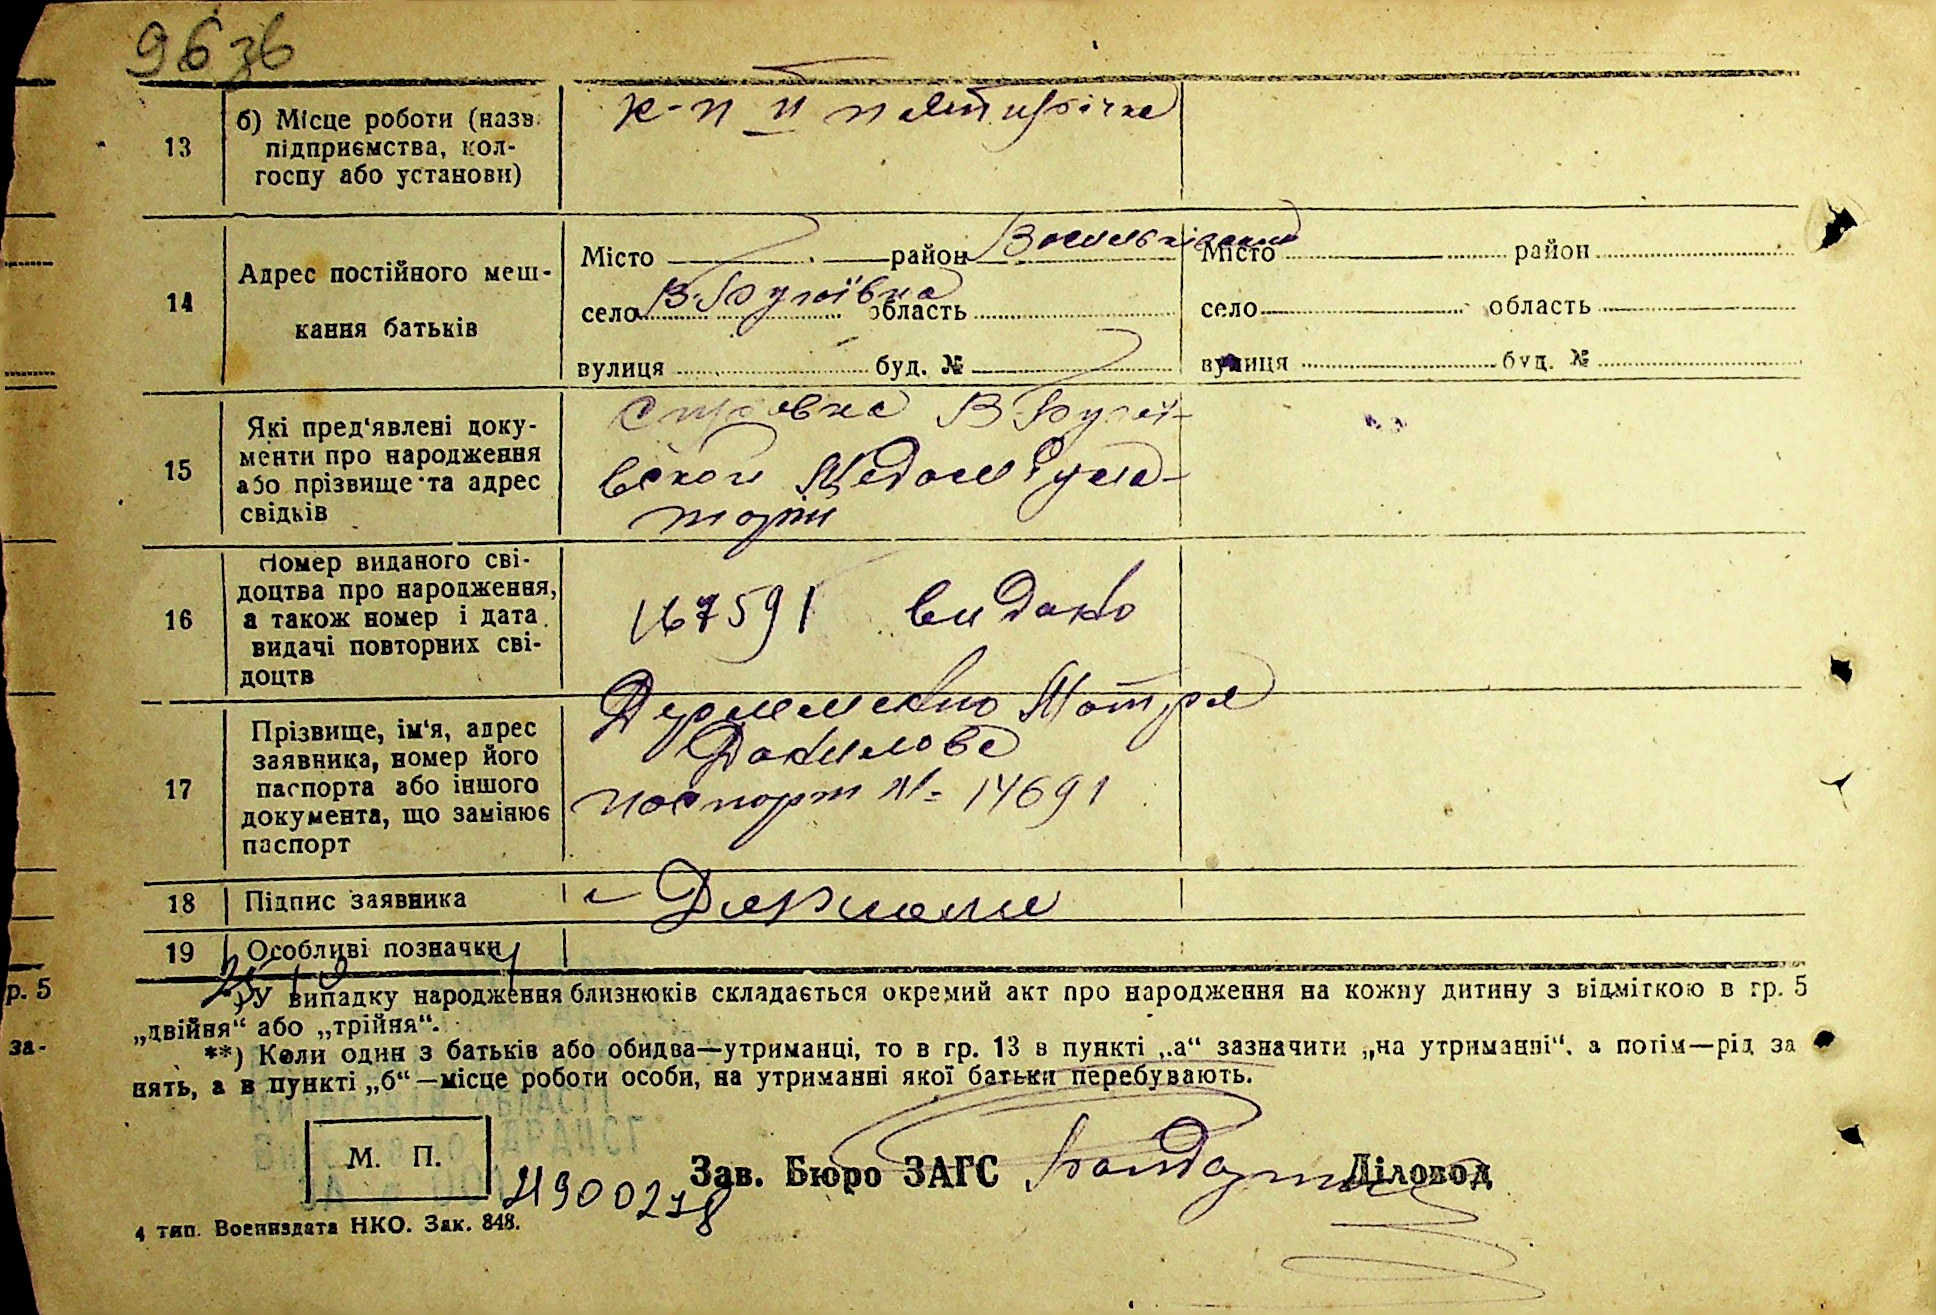 96 зв
13
б) Місце роботи (назв.
підприємства, кол-
госпу або установи)
к-п II п'ятирічка
14
Адрес постійного меш-
кання батьків
Місто район Васильківський
село В-Бугаївка область
вулиця буд. №
Місто район
село область
вулиця буд. №
15
Які пред'явлені доку-
менти про народження
або прізвище та адрес
свідків
Справка В Бугаї-
вской
16
Номер виданого сві-
доцтва про народження,
а також номер і дата
видачі повторних сві-
доцтв
167591 видано
17
Прізвище, ім'я, адрес
заявника, номер його
паспорта або іншого
документа, що замінює
паспорт
Мотря
Данилова
паспорт № 14691
18
Підпис заявника
19
Особливі позначки
р. 5
*) У випадку народження близнюків складається окремий акт про народження на кожну дитину з відміткою в гр. 5
„двійня“ або „трійня“.
за-
**) Коли один з батьків або обидва—утриманці, то в гр. 13 в пункті „а“ зазначити „на утриманні“, а потім—рід за
нять, а в пункті „б“—місце роботи особи, на утриманні якої батьки перебувають.
М. П.
Зав. Бюро ЗАГС
Діловод
4 тип. Воениздата НКО. Зак. 848.